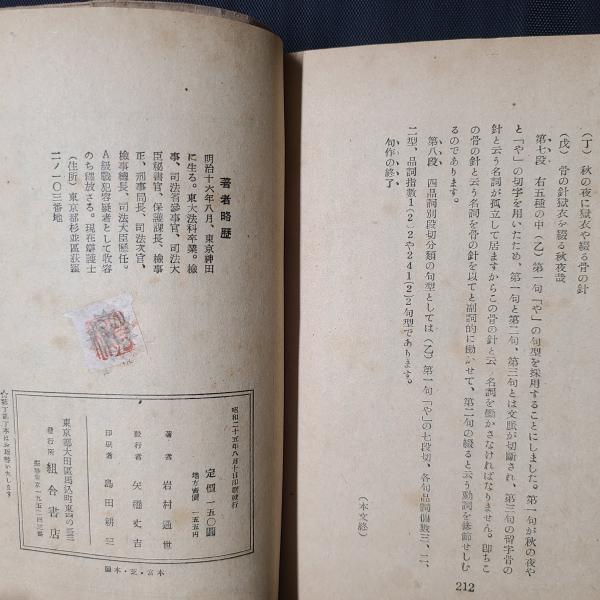 (丁) 秋の夜に獄衣や綴る骨の針
(戊) 骨の針獄衣を綴る秋夜哉
第七段 右五種の中(乙)第一句「や」の句型を採用することにしました。第一句が秋の夜や
と「や」の切字を用いたため、第一句と第二句、第三句とは文脈が切斷され、第三句の留字骨の
針と云う名詞が孤立して居ますからこの骨の針と云う名詞を働かさなければなりません。卽ちこ
の骨の針と云う名詞を骨の針を以てと副詞的に働かせて、第二句の綴ると云う動詞を修飾せしむ
るのであります。
第八段 四品詞別段切分類の句型としては(乙)第一句「や」の七段切、各句品詞個數三、二、
二型、品詞指數1(2)2や241(2)2句型であります。
句作の終了
(本文終)
212
著者略歴
明治十六年八月、東京神田
に生る。東大法科卒業。檢
事、司法省參事官、司法大
臣秘書官、保護課長、檢事
正、刑事局長、司法次官、
檢事總長、司法大臣歴任。
A級戰犯容疑者として收容
のち釋放さる。現在辯護士
(住所) 東京都杉並區荻窪
二ノ一〇三番地
昭和二十五年八月十日印刷發行
定價一五〇圓
地方賣價 一五五円
著者 岩村通世
發行者 矢橋丈吉
印刷者 島田耕三
東京都大田區馬込町東四の三三
發行所 組合書店
振替東京一九五二四三番
本宮・芝・本橋
☆落丁亂丁本はお取替いたします